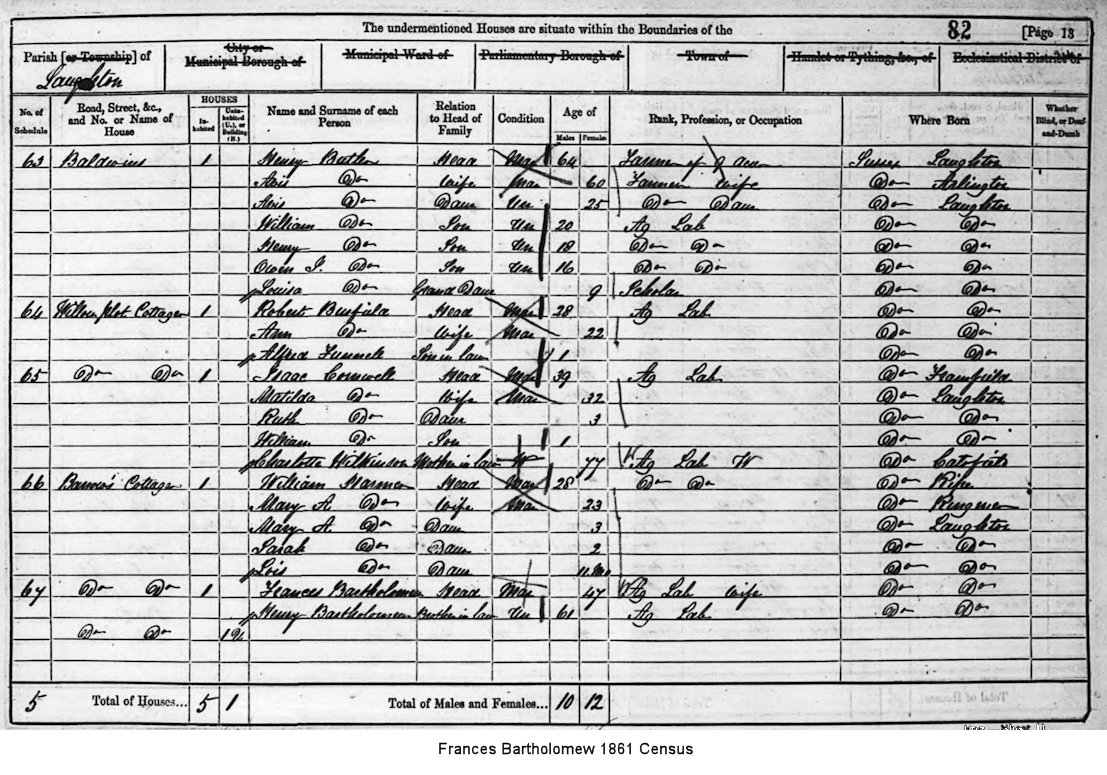 The undermentioned Houses are situate within the Boundaries of the 82 [Page 13
Parish [or Township] of City or Municipal Borough of Municipal Ward of Parliamentary Borough of Town of Hamlet or Tything, &c., of Ecclesiastical District of
Laughton
No. of Schedule Road, Street, &c., and No. or Name of House HOUSES Inhabited Uninhabited (U.), or Building (B.) Name and Surname of each Person Relation to Head of Family Condition Age of Males Females Rank, Profession, or Occupation Where Born Whether Blind, or Deaf-and-Dumb
63 Baldwins 1 Henry Butler Head Mar 64 Farmer of 9 acres Sussex Laughton
Avis Do Wife Mar 60 Farmer wife Do Arlington
Avis Do Daur 25 Do Daur Do Laughton
William Do Son Un 20 Ag Lab Do Do
Henry Do Son Un 18 Do Do Do Do
Owen J. Do Son Un 16 Do Do Do Do
Louisa Do Grand Daur 9 Scholar Do Do
64 Cottages 1 Robert Head Mar 28 Ag Lab Do Do
Ann Do Wife Mar 22 Do Do
Alfred Funnell Son in law 1 Do Do
65 Do Do 1 Isaac Cornwell Head Mar 39 Ag Lab Do Framfield
Matilda Do Wife Mar 32 Do Laughton
Ruth Do Daur 3 Do Do
William Do Son 1 Do Do
Charlotte Wilkinson Mother in law W 77 Ag Lab W Do
66 Cottages 1 William Harmer Head Mar 28 Do Do Do Ripe
Mary A Do Wife Mar 23 Do Ringmer
Mary A. Do Daur 3 Do Laughton
Sarah Do Daur 2 Do Do
Lois Do Daur 11 Mo Do Do
67 Do Do 1 Frances Bartholomew Head Mar 47 Ag Lab wife Do Do
Henry Bartholomew Brother in law Un 61 Ag Lab Do Do
Do Do 1 U
5 Total of Houses... 5 1 Total of Males and Females... 10 12
Frances Bartholomew 1861 Census